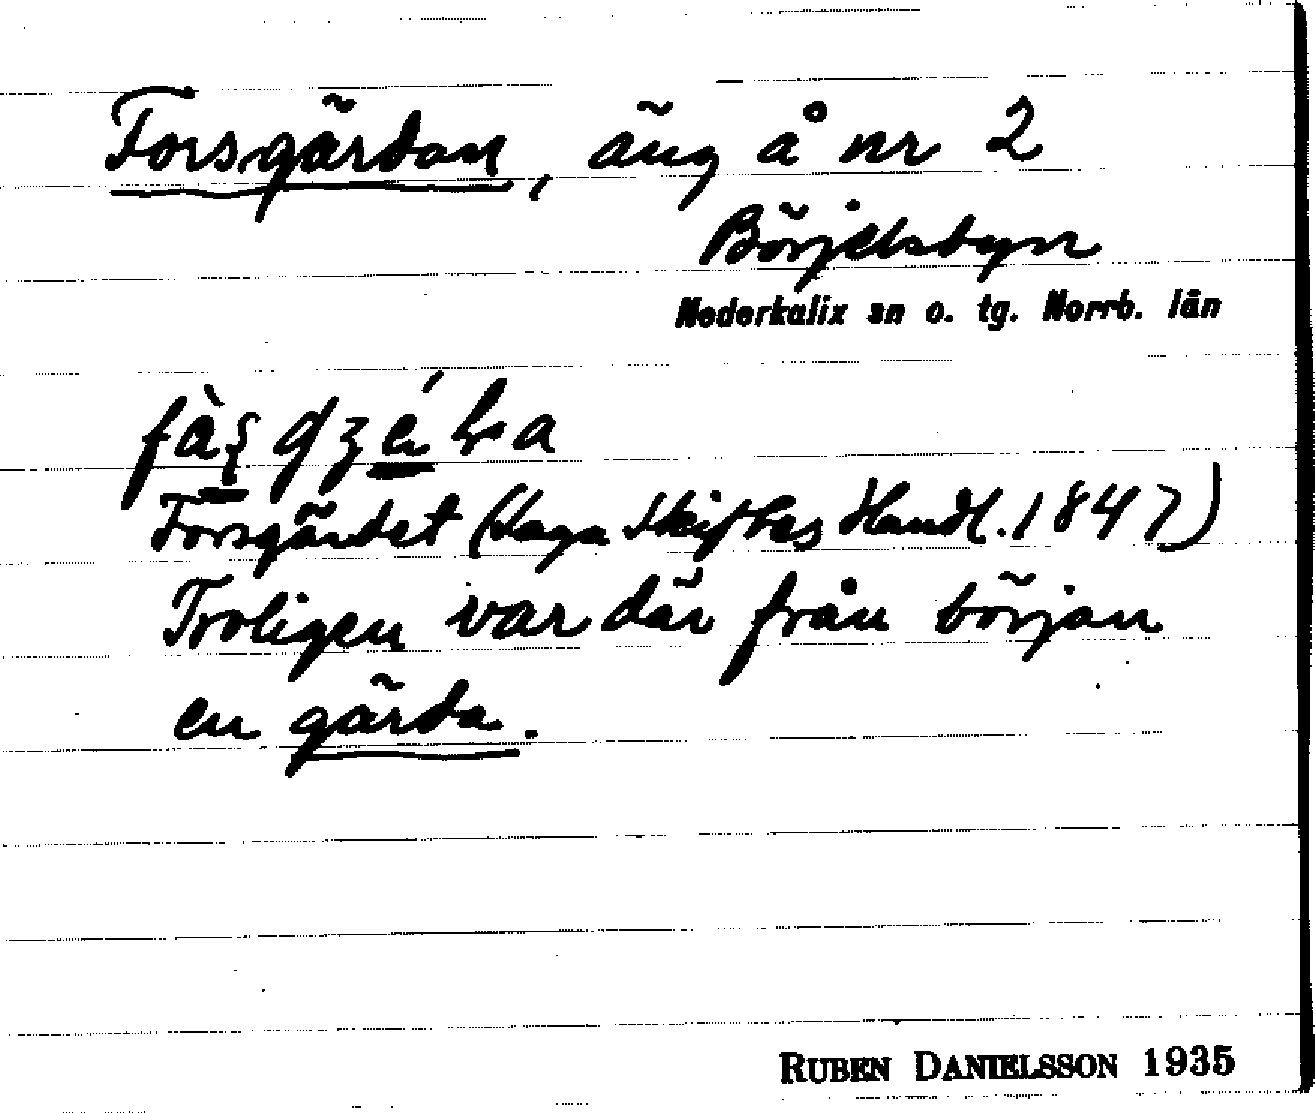 Forsgärdan, äng å nr 2
Börjelsbyn
Nederkalix sn o. tg. Norrb. län
Forsgärdet (Laga Skiftes Handl. 1847)
Troligen var där från början
en gärda.
RUBEN DANIELSSON 1935